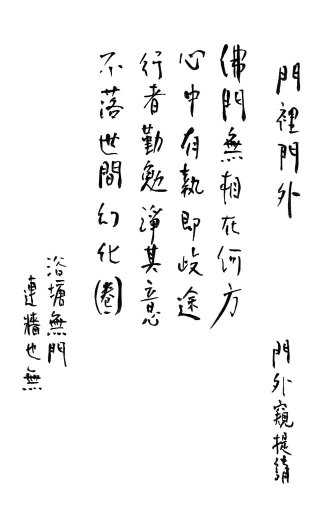 門裡門外
門外窺提情
佛門無相在何方
心中有執即歧途
行者勤勉淨其意
不落世間幻化（卷）
浴塘無門
連牆也無